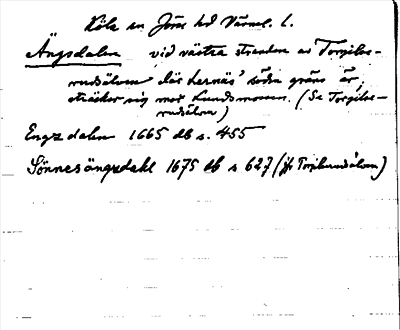 Köla sn Jösse hd Värml. l.
Ängsdalen vid västra stranden av Torgils-
rudsälven där Lernäs' södra gräns är,
sträcker sig mot Lundsmosson. (Se Torgils-
rudsälven)
Engzdalen 1665 db s. 455
Sönnesängzdahl 1675 db s 627 (jfr Torgilsrudsälven)